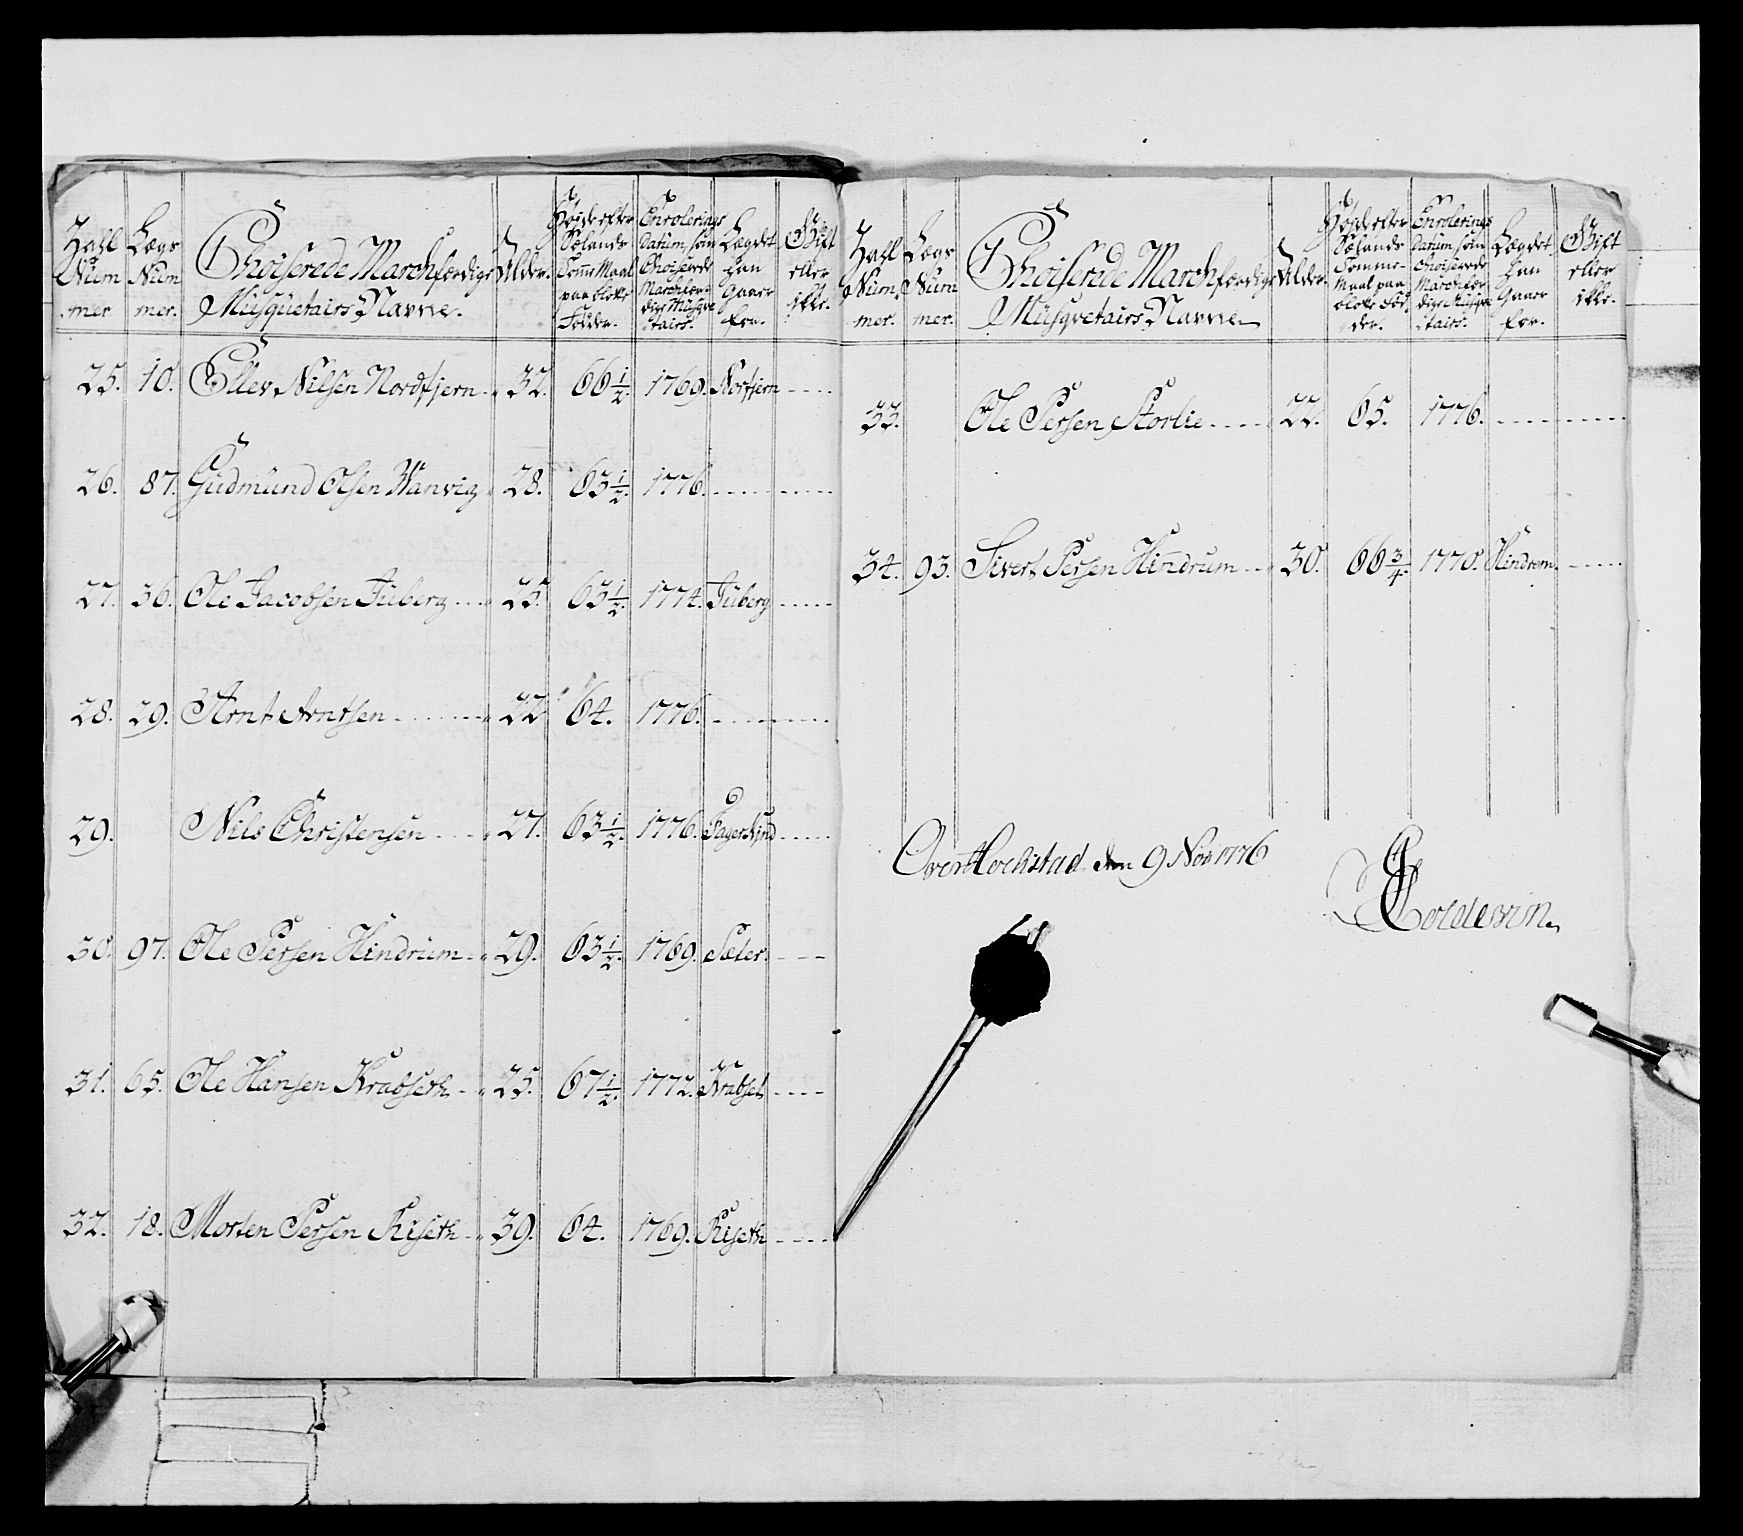 Zahl Num mer
Lægs Num mer.
Choiserede Marchfærdige Musquetairs Navne.
Alder.
Højde efter Sælands Tomme Maal paa blotte Fødder.
Enrolerings Datum, som Choiserede Marchfær- dige Musqve tairs.
Lægdet han Gaaer for.
Gift eller ikke.
25. 10. Ellev Nilsen Nordfjern 32. 66 1/2. 1769. Norfjern
26. 87. Gudmund Olsen Wanvig 28. 63 1/2. 1776.
27. 36. Ole Jacobsen Juberg 25. 63 1/2. 1774. Juberg
28. 29. Arnt Arntsen 22 64. 1776.
29. Nils Christensen 27. 63 1/2. 1776.
30. 97. Ole Persen Hindrum 29. 63 1/2. 1769. Sæter.
31. 65. Ole Hansen Krabseth 25. 67 1/2. 1772. Krabset
32. 18. Morten Persen Riseth 39. 64. 1769. Riseth
Zahl Num. mer.
Lægs Num mer.
Choiserede Marchfærdige Musqvetairs Navne
Alder.
Højde efter Sælands Tomme- Maal paa blotte Fød der.
Enrolerings Datum, som Choiserede Marchfær dige Musqve tairs.
Lægdet han Gaaer for.
Gift eller ikke.
33. Ole Persen Storlie 22. 65. 1776.
34. 93. Sivert Persen Hindrum 30. 66 3/4. 1770. Hindrem
den 9 Nov 1776
Coldevin